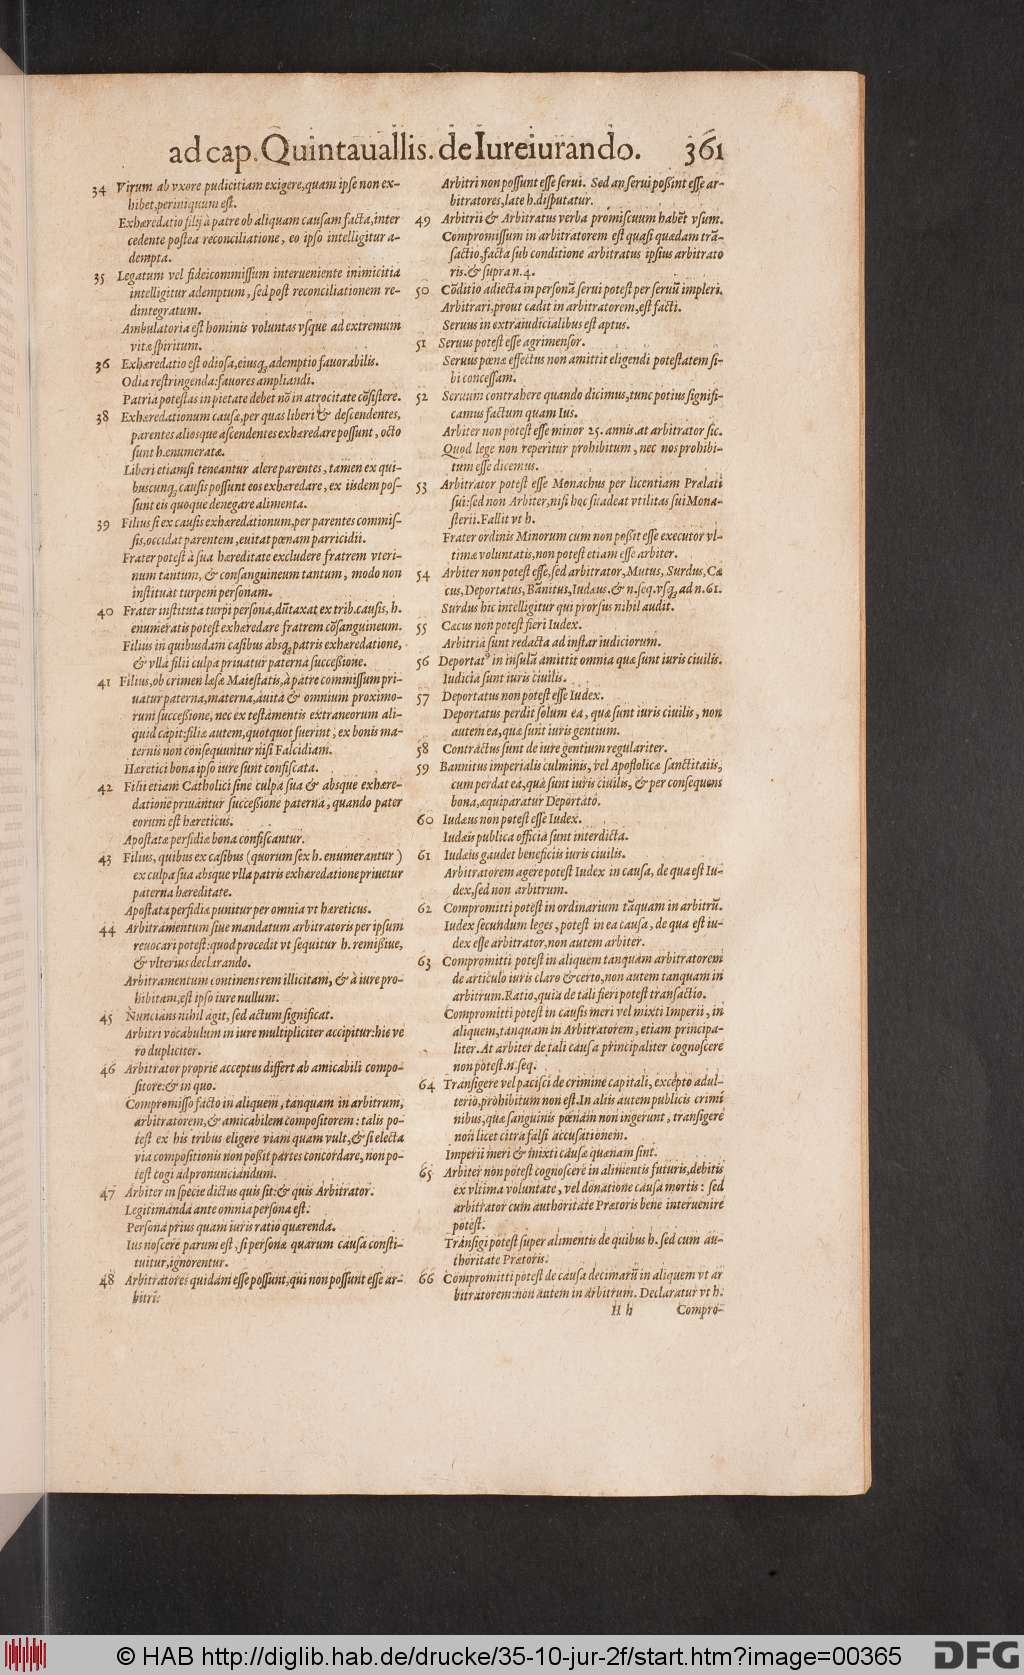 ad cap. Quintauallis. de Iureiurando. 361
34 Virum ab vxore pudicitiam exigere, quam ipse non ex-
hibet, periniquum est.
Exhæredatio filij à patre ob aliquam causam facta, inter
cedente postea reconciliatione, eo ipso intelligitur a-
dempta.
35 Legatum vel fideicommissum interueniente inimicitia
intelligitur ademptum, sed post reconciliationem re-
dintegratum.
Ambulatoria est hominis voluntas vsque ad extremum
vitæ spiritum.
36 Exhæredatio est odiosa, eiusq́, ademptio fauorabilis.
Odia restringenda: fauores ampliandi.
Patria potestas in pietate debet nō in atrocitate cōsistere.
38 Exhæredationum causæ, per quas liberi & descendentes,
parentes aliosque ascendentes exhæredare possunt, octo
sunt h. enumeratæ.
Liberi etiamsi teneantur alere parentes, tamen ex qui-
buscunq́, causis possunt eos exhæredare, ex iisdem pos-
sunt eis quoque denegare alimenta.
39 Filius si ex causis exhæredationum, per parentes commis-
sis, occidat parentem, euitat pœnam parricidii.
Frater potest à sua hæreditate excludere fratrem vteri-
num tantum, & consanguineum tantum, modo non
instituat turpem personam.
40 Frater instituta turpi persona, dūtaxat ex trib. causis, h.
enumeratis potest exhæredare fratrem cōsanguineum.
Filius in quibusdam casibus absq́, patris exhæredatione,
& vlla filii culpa priuatur paterna successione.
41 Filius, ob crimen læsæ Maiestatis, à patre commissum pri-
uatur paterna, materna, auita & omnium proximo-
rum successione, nec ex testamentis extraneorum ali-
quid capit: filiæ autem, quotquot fuerint, ex bonis ma-
ternis non consequuntur nisi Falcidiam.
Hæretici bona ipso iure sunt confiscata.
42 Filii etiam Catholici sine culpa sua & absque exhære-
datione priuantur successione paterna, quando pater
eorum est hæreticus.
Apostatæ perfidiæ bona confiscantur.
43 Filius, quibus ex casibus (quorum sex h. enumerantur)
ex culpa sua absque vlla patris exhæredatione priuetur
paterna hæreditate.
Apostata perfidiæ punitur per omnia vt hæreticus.
44 Arbitramentum siue mandatum arbitratoris per ipsum
reuocari potest: quod procedit vt sequitur h. remissiue,
& vlterius declarando.
Arbitramentum continens rem illicitam, & à iure pro-
hibitam, est ipso iure nullum.
45 Nuncians nihil agit, sed actum significat.
Arbitri vocabulum in iure multipliciter accipitur: hic ve
ro dupliciter.
46 Arbitrator proprie acceptus differt ab amicabili compo-
sitore: & in quo.
Compromisso facto in aliquem, tanquam in arbitrum,
arbitratorem, & amicabilem compositorem: talis po-
test ex his tribus eligere viam quam vult, & si electa
via compositionis non possit partes concordare, non po-
test cogi ad pronunciandum.
47 Arbiter in specie dictus quis sit: & quis Arbitrator.
Legitimanda ante omnia persona est.
Persona prius quam iuris ratio quærenda.
Ius noscere parum est, si personæ quarum causa consti-
tuitur, ignorentur.
48 Arbitratores quidam esse possunt, qui non possunt esse ar-
bitri.
Arbitri non possunt esse serui. Sed an serui possint esse ar-
bitratores, late h. disputatur.
49 Arbitrii & Arbitratus verba promiscuum habēt vsum.
Compromissum in arbitratorem est quasi quædam trā-
sactio, facta sub conditione arbitratus ipsius arbitrato
ris. & supra n. 4.
50 Cōditio adiecta in personā serui potest per seruū impleri.
Arbitrari, prout cadit in arbitratorem, est facti.
Seruus in extraiudicialibus est aptus.
51 Seruus potest esse agrimensor.
Seruus pœnæ effectus non amittit eligendi potestatem si-
bi concessam.
52 Seruum contrahere quando dicimus, tunc potius signifi-
camus factum quam Ius.
Arbiter non potest esse minor 25. annis. at arbitrator sic.
Quod lege non reperitur prohibitum, nec nos prohibi-
tum esse dicemus.
53 Arbitrator potest esse Monachus per licentiam Prælati
sui: sed non Arbiter, nisi hoc suadeat vtilitas sui Mona-
sterii. Fallit vt h.
Frater ordinis Minorum cum non possit esse executor vl-
timæ voluntatis, non potest etiam esse arbiter.
54 Arbiter non potest esse, sed arbitrator, Mutus, Surdus, Cæ
cus, Deportatus, Bānitus, Iudæus. & n. seq. vsq́, ad n. 61.
Surdus hic intelligitur qui prorsus nihil audit.
55 Cæcus non potest fieri Iudex.
Arbitria sunt redacta ad instar iudiciorum.
56 Deportatꝰ in insulā amittit omnia quæ sunt iuris ciuilis.
Iudicia sunt iuris ciuilis.
57 Deportatus non potest esse Iudex.
Deportatus perdit solum ea, quæ sunt iuris ciuilis, non
autem ea, quæ sunt iuris gentium.
58 Contractus sunt de iure gentium regulariter.
59 Bannitus imperialis culminis, vel Apostolicæ sanctitatis,
cum perdat ea, quæ sunt iuris ciuilis, & per consequens
bona, æquiparatur Deportato.
60 Iudæus non potest esse Iudex.
Iudæis publica officia sunt interdicta.
61 Iudæus gaudet beneficiis iuris ciuilis.
Arbitratorem agere potest Iudex in causa, de qua est Iu-
dex, sed non arbitrum.
62 Compromitti potest in ordinarium tāquam in arbitrū.
Iudex secundum leges, potest in ea causa, de qua est iu-
dex esse arbitrator, non autem arbiter.
63 Compromitti potest in aliquem tanquam arbitratorem
de articulo iuris claro & certo, non autem tanquam in
arbitrum. Ratio, quia de tali fieri potest transactio.
Compromitti potest in causis meri vel mixti Imperii, in
aliquem, tanquam in Arbitratorem, etiam principa-
liter. At arbiter de tali causa principaliter cognoscere
non potest. n. seq.
64 Transigere vel pacisci de crimine capitali, excepto adul-
terio, prohibitum non est. In aliis autem publicis crimi
nibus, quæ sanguinis pœnam non ingerunt, transigere
non licet citra falsi accusationem.
Imperii meri & mixti causæ quænam sint.
65 Arbiter non potest cognoscere in alimentis futuris, debitis
ex vltima voluntate, vel donatione causa mortis: sed
arbitrator cum authoritate Prætoris bene interuenire
potest.
Transigi potest super alimentis de quibus h. sed cum au-
thoritate Prætoris.
66 Compromitti potest de causa decimarū in aliquem vt ar
bitratorem: non autem in arbitrum. Declaratur vt h.
H h Compro-
© HAB http://diglib.hab.de/drucke/35-10-jur-2f/start.htm?image=00365 DFG